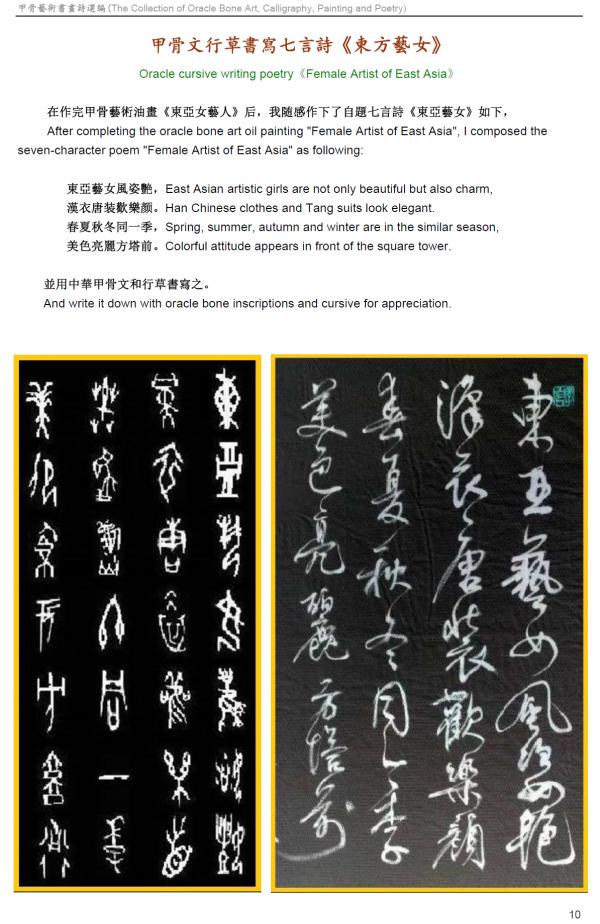 甲骨藝術書畫詩選編(The Collection of Oracle Bone Art, Calligraphy, Painting and Poetry)
甲骨文行草書寫七言詩《東方藝女》
Oracle cursive writing poetry《Female Artist of East Asia》
在作完甲骨藝術油畫《東亞女藝人》后，我随感作下了自題七言詩《東亞藝女》如下，
After completing the oracle bone art oil painting "Female Artist of East Asia", I composed the
seven-character poem "Female Artist of East Asia" as following:
東亞藝女風姿艷，East Asian artistic girls are not only beautiful but also charm,
漢衣唐装歡樂颜。Han Chinese clothes and Tang suits look elegant.
春夏秋冬同一季，Spring, summer, autumn and winter are in the similar season,
美色亮麗方塔前。Colorful attitude appears in front of the square tower.
並用中華甲骨文和行草書寫之。
And write it down with oracle bone inscriptions and cursive for appreciation.
東亞藝女風姿艷
漢衣唐裝歡樂顔
春夏秋冬同一季
美色亮麗方塔前
10